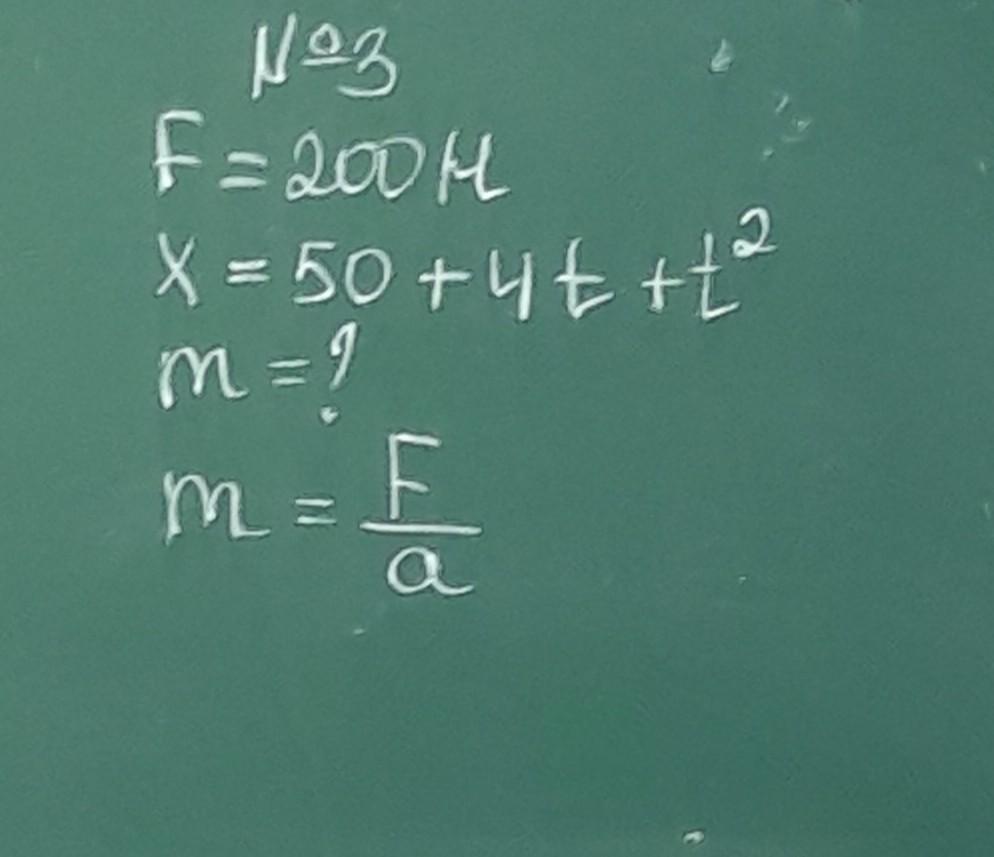 №3
F = 200 Н
X = 50 + 4t + t²
m = ?
m = F/a